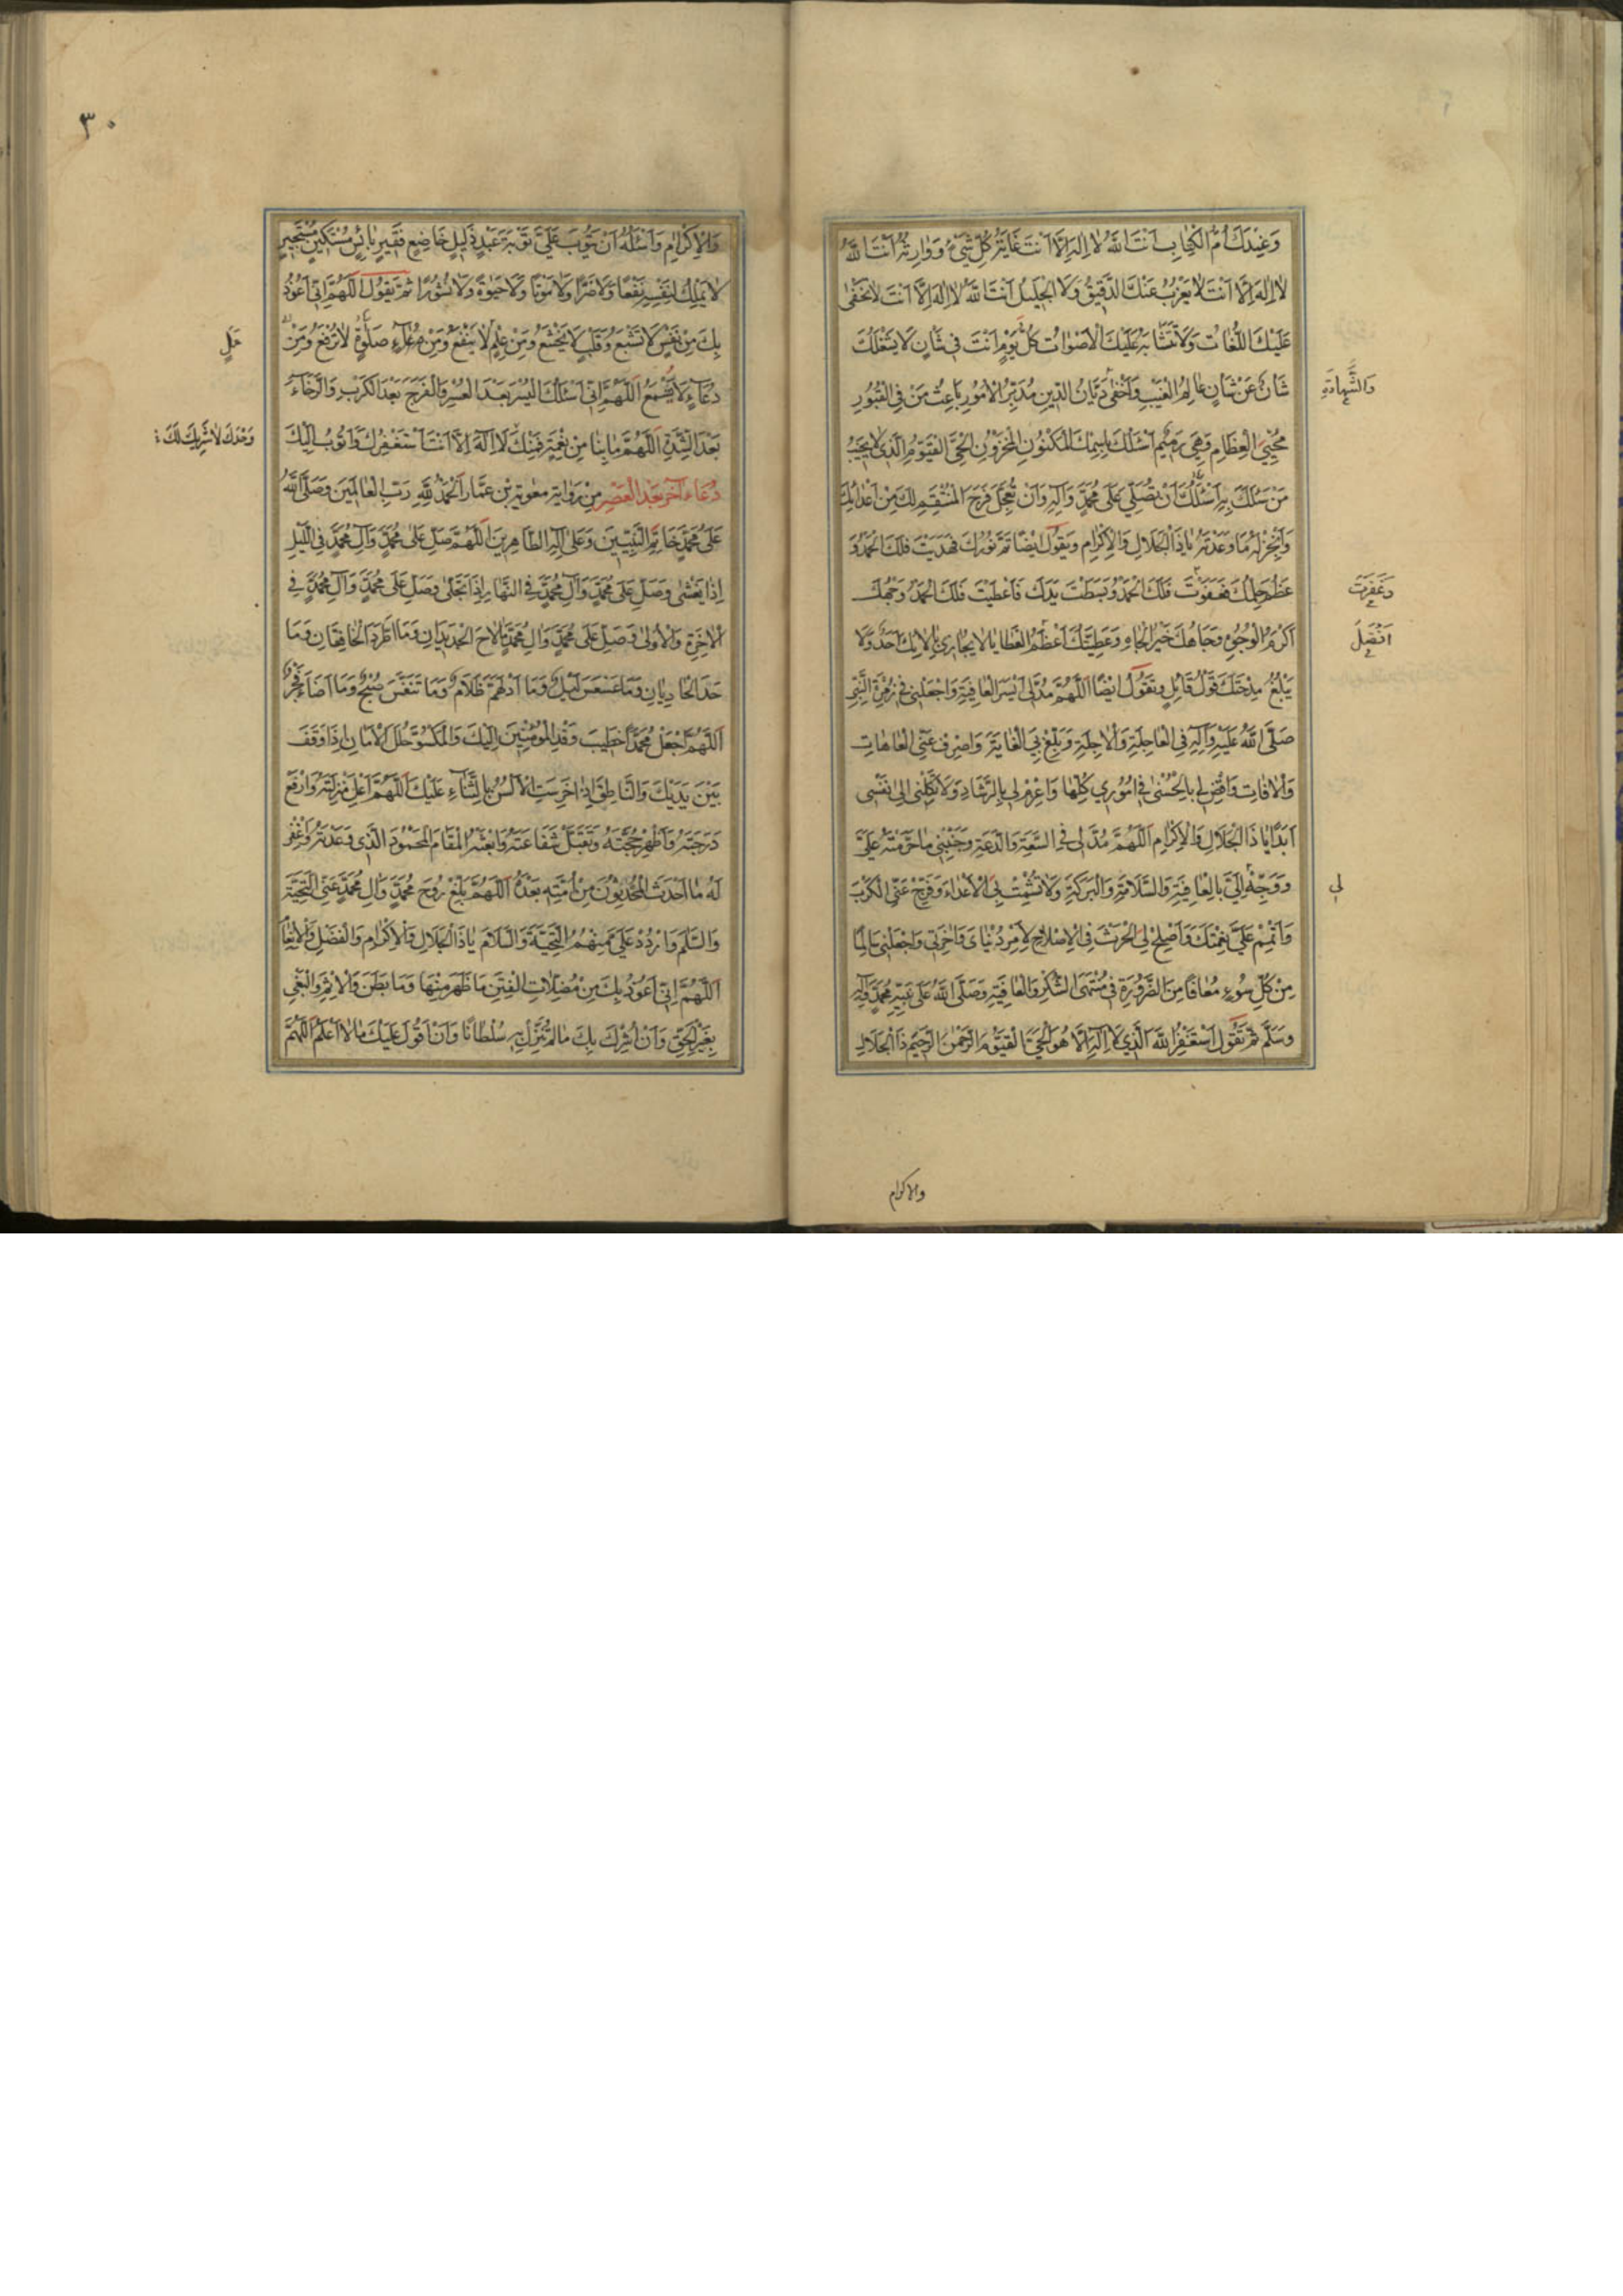 وَعِنْدَكَ اُمُّ الْكِتَابِ اَنْتَ اللهُ لَا اِلٰهَ اِلَّا اَنْتَ غَايَةُ كُلِّ شَيْءٍ وَوَارِثُهُ اَنْتَ اللهُ
لَا اِلٰهَ اِلَّا اَنْتَ لَا يَعْزُبُ عَنْكَ الدَّقِيقُ وَلَا الْجَلِيلُ اَنْتَ اللهُ لَا اِلٰهَ اِلَّا اَنْتَ لَا تَخْفٰى
عَلَيْكَ اللُّغَاتُ وَلَا تَتَشَابَهُ عَلَيْكَ الْاَصْوَاتُ كُلَّ يَوْمٍ اَنْتَ فِي شَاْنٍ لَا يَشْغَلُكَ
شَاْنٌ عَنْ شَاْنٍ عَالِمُ الْغَيْبِ وَاَخْفٰى دَيَّانُ الدِّينِ مُدَبِّرُ الْاُمُورِ بَاعِثُ مَنْ فِي الْقُبُورِ
وَالشَّهَادَةِ
مُحْيِي الْعِظَامِ وَهِيَ رَمِيمٌ اَسْئَلُكَ بِاسْمِكَ الْمَكْنُونِ الْمَخْزُونِ الْحَيِّ الْقَيُّومِ الَّذِي لَا يَخِيبُ
مَنْ سَئَلَكَ بِهِ اَسْئَلُكَ اَنْ تُصَلِّيَ عَلٰى مُحَمَّدٍ وَآلِهِ وَاَنْ تُعَجِّلَ فَرَجَ الْمُنْتَقِمِ لَكَ مِنْ اَعْدَائِكَ
وَاَنْجِزْ لَهُ مَا وَعَدْتَهُ يَا ذَا الْجَلَالِ وَالْاِكْرَامِ وَيَقُولُ اَيْضًا تَمَّ نُورُكَ فَهَدَيْتَ فَلَكَ الْحَمْدُ وَ
عَظُمَ حِلْمُكَ فَعَفَوْتَ فَلَكَ الْحَمْدُ وَبَسَطْتَ يَدَكَ فَاَعْطَيْتَ فَلَكَ الْحَمْدُ وَجْهُكَ
وَغَفَرْتَ
اَكْرَمُ الْوُجُوهِ وَجَاهُكَ خَيْرُ الْجَاهِ وَعَطِيَّتُكَ اَعْظَمُ الْعَطَايَا لَا يُجَازِي بِآلَائِكَ اَحَدٌ وَلَا
اَفْضَلُ
يَبْلُغُ مِدْحَتَكَ قَوْلُ قَائِلٍ وَتَقُولُ اَيْضًا اَللّٰهُمَّ مُدَّ لِي اَيْسَرَ الْعَافِيَةِ وَاجْعَلْنِي فِي زُمْرَةِ النَّبِيِّ
صَلَّى اللهُ عَلَيْهِ وَآلِهِ فِي الْعَاجِلَةِ وَالْآجِلَةِ وَبَلِّغْ بِيَ الْغَايَةَ وَاصْرِفْ عَنِّي الْعَاهَاتِ
وَالْآفَاتِ وَاقْضِ لِي بِالْحُسْنٰى فِي اُمُورِي كُلِّهَا وَاعْزِمْ لِي بِالرَّشَادِ وَلَا تَكِلْنِي اِلٰى نَفْسِي
اَبَدًا يَا ذَا الْجَلَالِ وَالْاِكْرَامِ اَللّٰهُمَّ مُدَّ لِي فِي السَّعَةِ وَالدَّعَةِ وَجَنِّبْنِي مَا حَرَّمْتَهُ عَلَيَّ
وَوَجِّهْ اِلَيَّ بِالْعَافِيَةِ وَالسَّلَامَةِ وَالْبَرَكَةِ وَلَا تُشْمِتْ بِيَ الْاَعْدَاءَ وَفَرِّجْ عَنِّي الْكَرْبَ
لِي
وَاَتْمِمْ عَلَيَّ نِعْمَتَكَ وَاَصْلِحْ لِيَ الْحَرْثَ فِي الْاِصْلَاحِ لِاَمْرِ دُنْيَايَ وَآخِرَتِي وَاجْعَلْنِي سَالِمًا
مِنْ كُلِّ سُوءٍ مُعَافًا مِنَ الضَّرُورَةِ فِي مُنْتَهَى الشُّكْرِ وَالْعَافِيَةِ وَصَلَّى اللهُ عَلٰى نَبِيِّهِ مُحَمَّدٍ وَآلِهِ
وَسَلَّمَ ثُمَّ تَقُولُ اَسْتَغْفِرُ اللهَ الَّذِي لَا اِلٰهَ اِلَّا هُوَ الْحَيَّ الْقَيُّومَ الرَّحْمٰنَ الرَّحِيمَ ذَا الْجَلَالِ
والاكرام
٣٠
وَالْاِكْرَامِ وَاَسْئَلُهُ اَنْ يَتُوبَ عَلَيَّ تَوْبَةَ عَبْدٍ ذَلِيلٍ خَاضِعٍ فَقِيرٍ بَائِسٍ مِسْكِينٍ مُسْتَجِيرٍ
لَا يَمْلِكُ لِنَفْسِهِ نَفْعًا وَلَا ضَرًّا وَلَا مَوْتًا وَلَا حَيٰوةً وَلَا نُشُورًا ثُمَّ تَقُولُ اَللّٰهُمَّ اِنِّي اَعُوذُ
بِكَ مِنْ نَفْسٍ لَا تَشْبَعُ وَقَلْبٍ لَا يَخْشَعُ وَمِنْ عِلْمٍ لَا يَنْفَعُ وَمِنْ صَلٰوةٍ لَا تُرْفَعُ وَمِنْ
دُعَاءٍ لَا يُسْمَعُ اَللّٰهُمَّ اِنِّي اَسْئَلُكَ الْيُسْرَ بَعْدَ الْعُسْرِ وَالْفَرَجَ بَعْدَ الْكَرْبِ وَالرَّخَاءَ
بَعْدَ الشِّدَّةِ اَللّٰهُمَّ مَا بِنَا مِنْ نِعْمَةٍ فَمِنْكَ لَا اِلٰهَ اِلَّا اَنْتَ اَسْتَغْفِرُكَ وَاَتُوبُ اِلَيْكَ
وَحْدَكَ لَا شَرِيكَ لَكَ
دُعَاءٌ آخَرُ بَعْدَ الْعَصْرِ مِنْ رِوَايَةِ مُعٰوِيَةَ بْنِ عَمَّارٍ اَلْحَمْدُ لِلّٰهِ رَبِّ الْعَالَمِينَ وَصَلَّى اللهُ
عَلٰى مُحَمَّدٍ خَاتَمِ النَّبِيِّينَ وَعَلٰى آلِهِ الطَّاهِرِينَ اَللّٰهُمَّ صَلِّ عَلٰى مُحَمَّدٍ وَآلِ مُحَمَّدٍ فِي اللَّيْلِ
اِذَا يَغْشٰى وَصَلِّ عَلٰى مُحَمَّدٍ وَآلِ مُحَمَّدٍ فِي النَّهَارِ اِذَا تَجَلّٰى وَصَلِّ عَلٰى مُحَمَّدٍ وَآلِ مُحَمَّدٍ فِي
الْآخِرَةِ وَالْاُولٰى وَصَلِّ عَلٰى مُحَمَّدٍ وَآلِ مُحَمَّدٍ مَا لَاحَ الْجَدِيدَانِ وَمَا اطَّرَدَ الْخَافِقَانِ وَمَا
حَدَا الْحَادِيَانِ وَمَا عَسْعَسَ لَيْلٌ وَمَا ادْلَهَمَّ ظَلَامٌ وَمَا تَنَفَّسَ صُبْحٌ وَمَا اَضَاءَ فَجْرٌ
اَللّٰهُمَّ اجْعَلْ مُحَمَّدًا خَطِيبَ وَفْدِ الْمُؤْمِنِينَ اِلَيْكَ وَالْمَكْسُوَّ حُلَلَ الْاَمَانِ اِذَا وَقَفَ
بَيْنَ يَدَيْكَ وَالنَّاطِقَ اِذَا خَرِسَتِ الْاَلْسُنُ بِالثَّنَاءِ عَلَيْكَ اَللّٰهُمَّ اَعْلِ مَنْزِلَتَهُ وَارْفَعْ
دَرَجَتَهُ وَاَظْهِرْ حُجَّتَهُ وَتَقَبَّلْ شَفَاعَتَهُ وَابْعَثْهُ الْمَقَامَ الْمَحْمُودَ الَّذِي وَعَدْتَهُ وَاغْفِرْ
لَهُ مَا اَحْدَثَ الْمُحْدِثُونَ مِنْ اُمَّتِهِ بَعْدَهُ اَللّٰهُمَّ بَلِّغْ رُوحَ مُحَمَّدٍ وَآلِ مُحَمَّدٍ عَنِّي التَّحِيَّةَ
وَالسَّلَامَ وَارْدُدْ عَلَيَّ مِنْهُمُ التَّحِيَّةَ وَالسَّلَامَ يَا ذَا الْجَلَالِ وَالْاِكْرَامِ وَالْفَضْلِ وَالْاِنْعَامِ
اَللّٰهُمَّ اِنِّي اَعُوذُ بِكَ مِنْ مُضِلَّاتِ الْفِتَنِ مَا ظَهَرَ مِنْهَا وَمَا بَطَنَ وَالْاِثْمِ وَالْبَغْيِ
بِغَيْرِ الْحَقِّ وَاَنْ اُشْرِكَ بِكَ مَا لَمْ تُنَزِّلْ بِهِ سُلْطَانًا وَاَنْ اَقُولَ عَلَيْكَ مَا لَا اَعْلَمُ اَللّٰهُمَّ